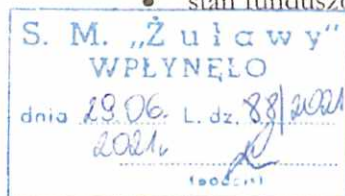 stan fundusz
S. M. „Żuławy”
WPŁYNĘŁO
dnia 29.06. L. dz. 88/2021
2021r
(podpis)